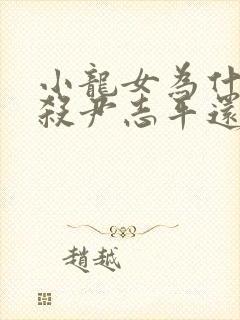 小龍女為什
殺尹志平還
趙越